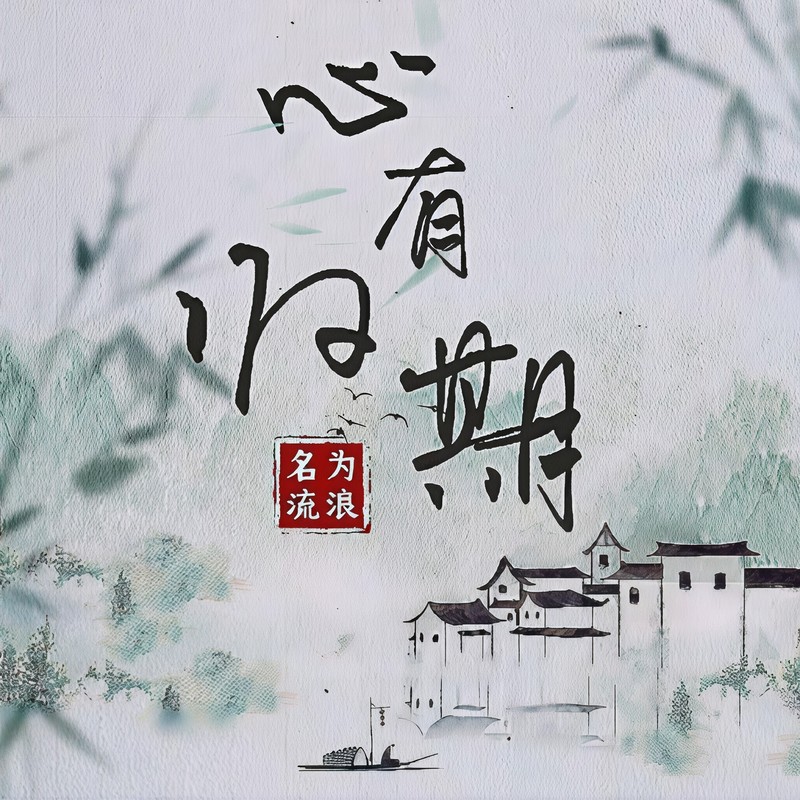 心有
归期
名为
流浪